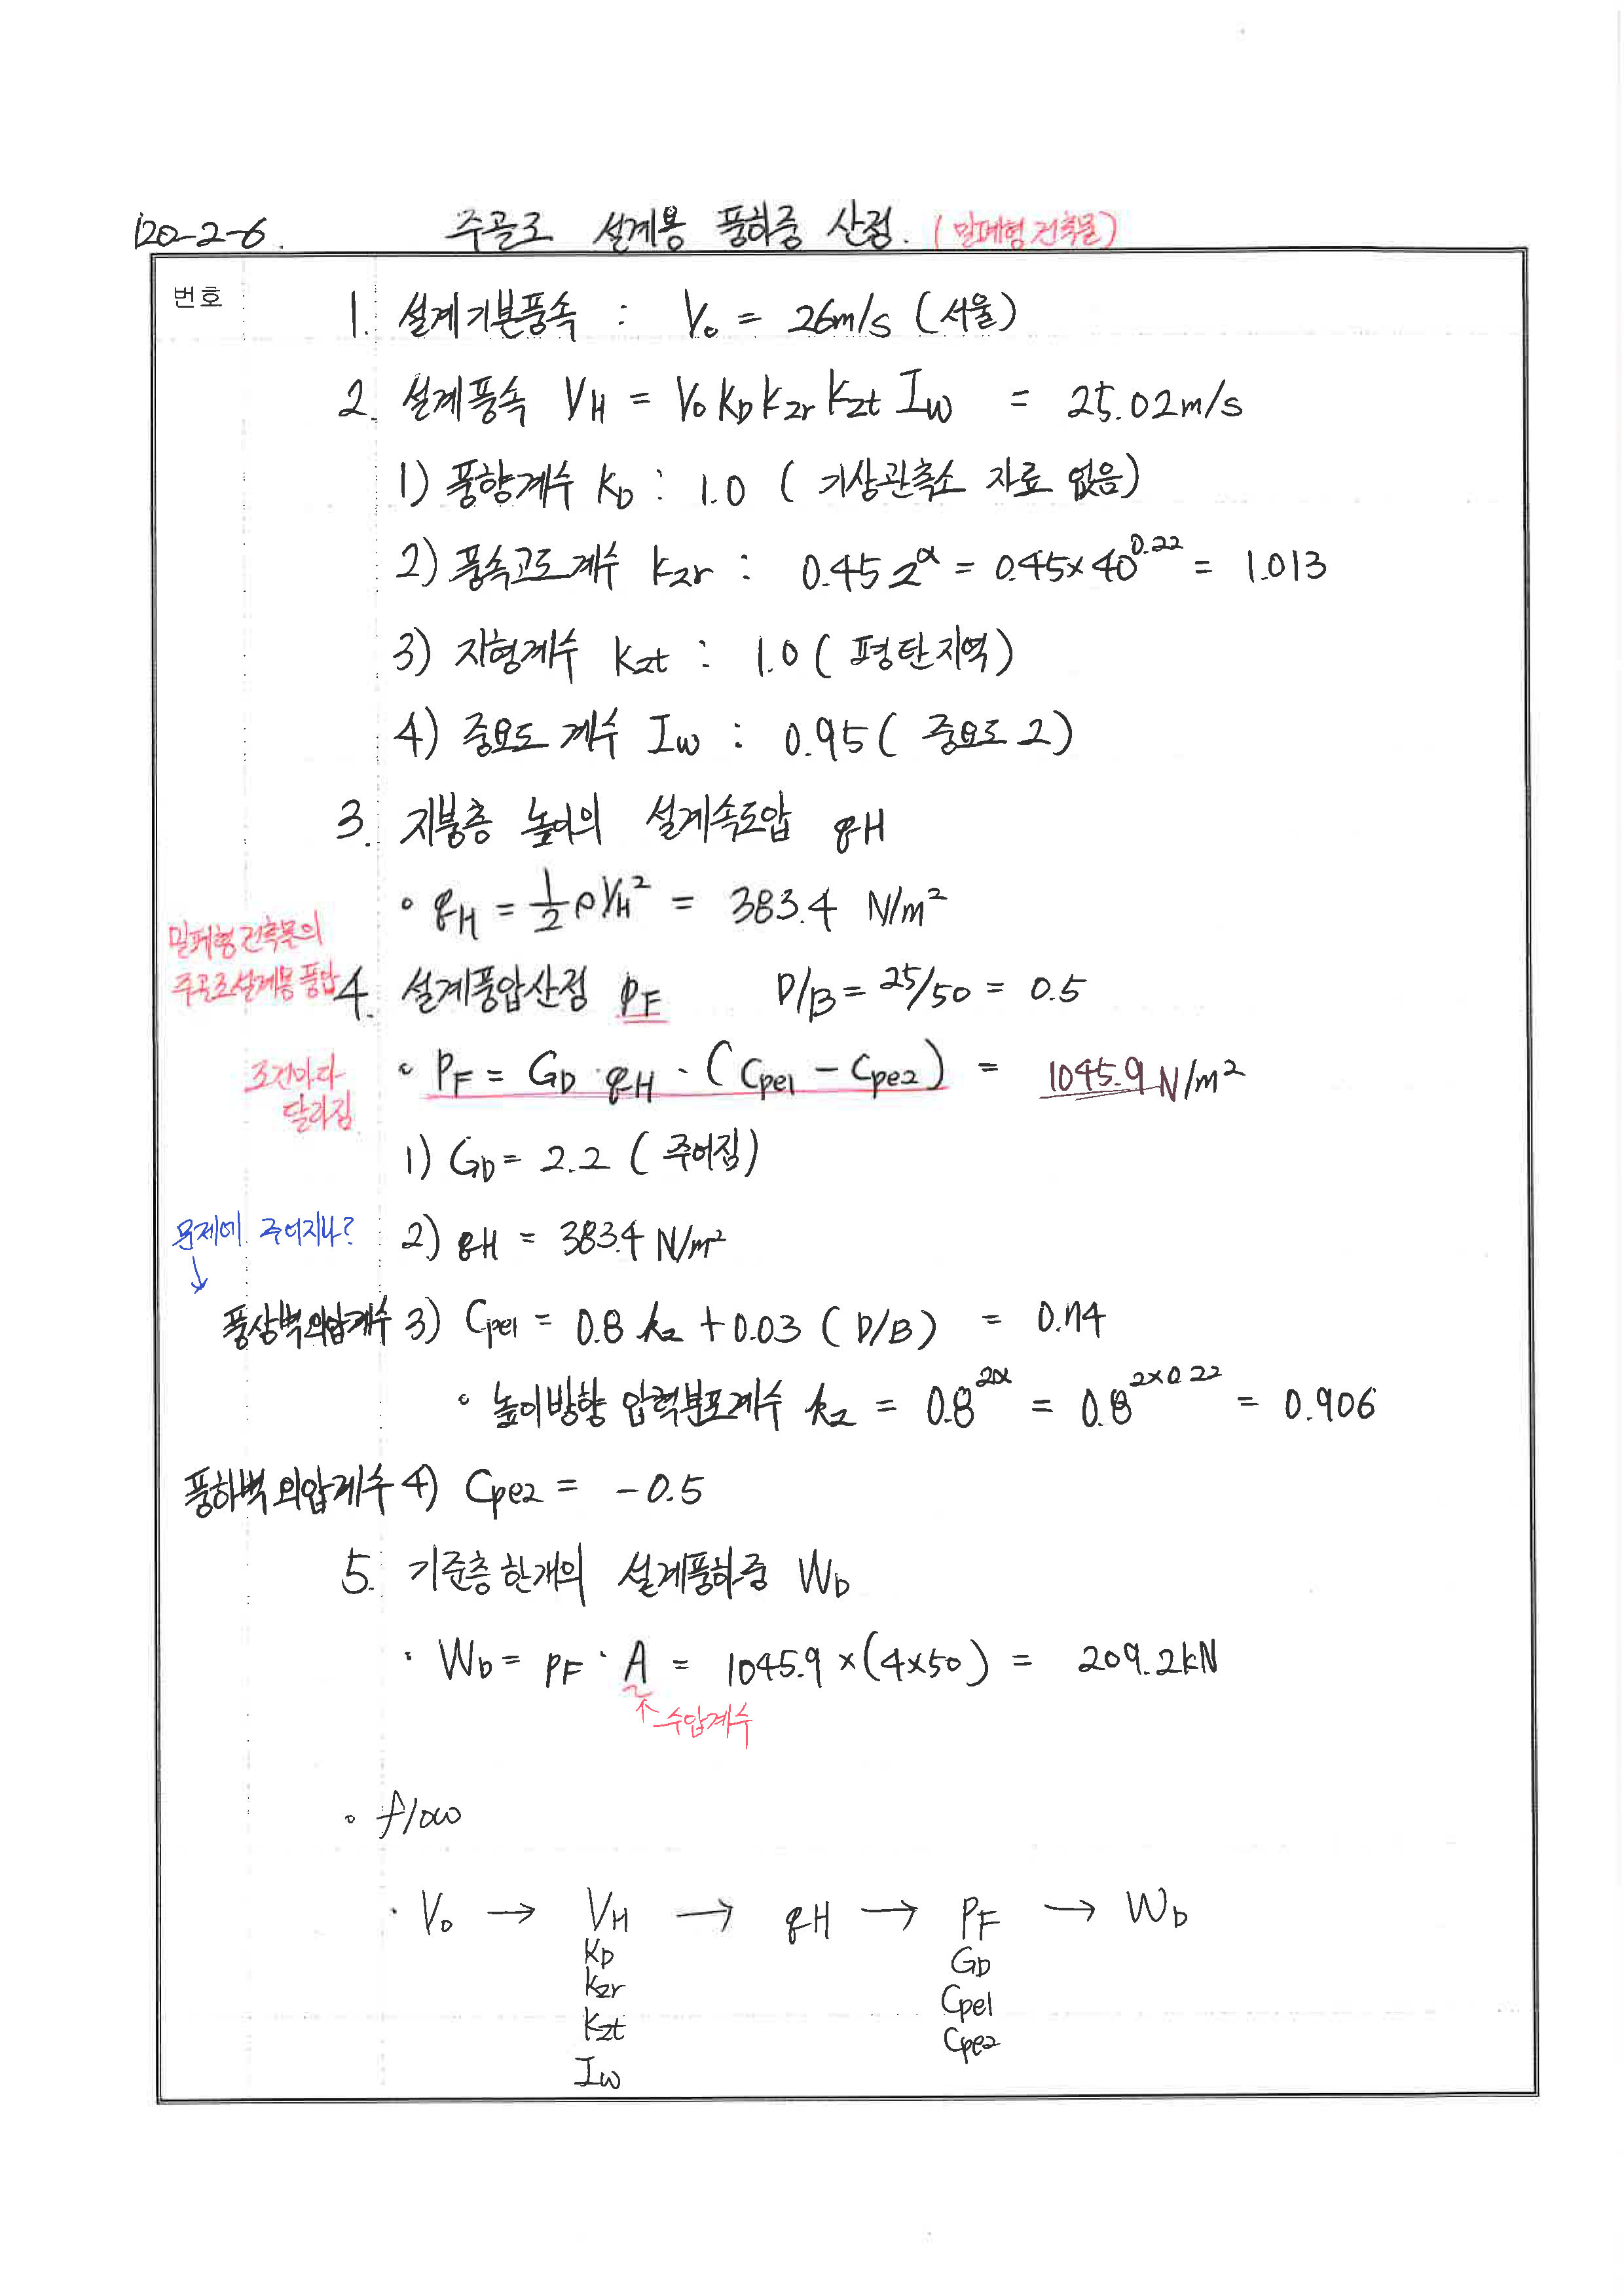 120-2-6. 주골조 설계용 풍하중 산정. (밀폐형 건축물)
번호
1. 설계기본풍속 : V₀ = 26m/s (서울)
2. 설계풍속 V_H = V₀ K_D K_zr K_zt I_w = 25.02m/s
1) 풍향계수 K_D : 1.0 ( 기상관측소 자료 없음)
2) 풍속고도계수 K_zr : 0.45 Z^α = 0.45×40^0.22 = 1.013
3) 지형계수 K_zt : 1.0 ( 평탄지역)
4) 중요도 계수 I_w : 0.95 ( 중요도 2)
3. 지붕층 높이의 설계속도압 q_H
∘ q_H = 1/2 ρV_H² = 383.4 N/m²
밀폐형건축물의
주골조설계용풍압
4. 설계풍압산정 P_F D/B = 25/50 = 0.5
조건마다
달라짐
∘ P_F = G_D · q_H · (C_pe1 − C_pe2) = 1045.9 N/m²
1) G_D = 2.2 ( 주어짐)
문제에 주어지나?
↓
2) q_H = 383.4 N/m²
풍상벽외압계수 3) C_pe1 = 0.8 k_z + 0.03 ( D/B) = 0.74
∘ 높이방향 압력분포계수 k_z = 0.8^2α = 0.8^2×0.22 = 0.906
풍하벽 외압계수 4) C_pe2 = −0.5
5. 기준층한개의 설계풍하중 W_D
· W_D = P_F · A = 1045.9 ×(4×50) = 209.2kN
↑ 수압계수
∘ flow
· V₀ → V_H → q_H → P_F → W_D
K_D G_D
K_zr C_pe1
K_zt C_pe2
I_w